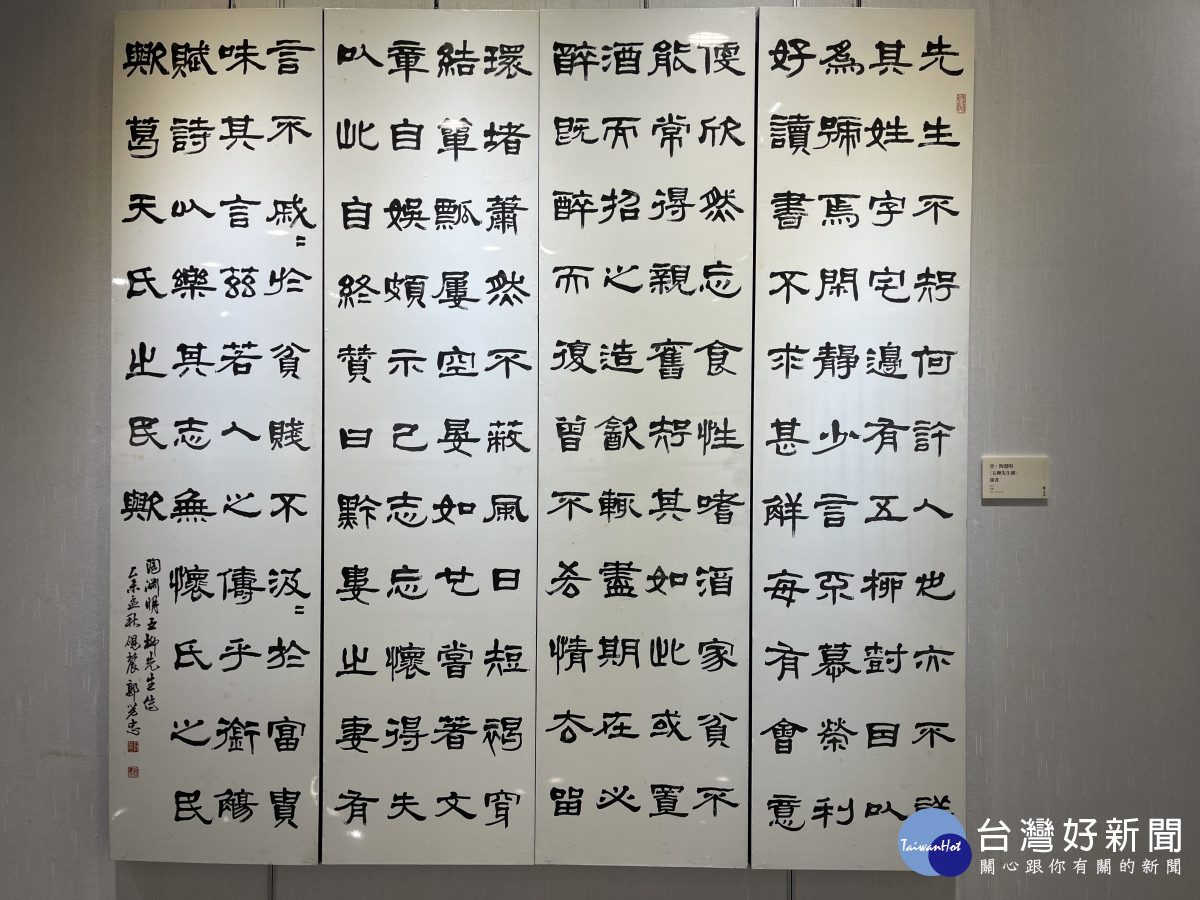 先生不知何許人也亦不詳
其姓字宅邊有五柳對因以
為號焉閑靜少言不慕榮利
好讀書不求甚解每有會意
便欣然忘食性嗜酒家貧不
能常得親舊知其如此或置
酒而招之造飲輒盡期在必
醉既醉而退曾不吝情去留
環堵蕭然不蔽風日短褐穿
結單瓢屢空晏如也嘗著文
章自娛頗示己志忘懷得失
以此自終贊曰黔婁之妻有
言不戚〻於貧賤不汲〻於富貴
味其言茲若人之儔乎銜觴
賦詩以樂其志無懷氏之民
歟葛天氏之民歟
陶淵明五柳先生傳
乙未孟秋 郭芳忠
晉・陶淵明
《五柳先生傳》
隸書
TaiwanHot
台灣好新聞
關心跟你有關的新聞